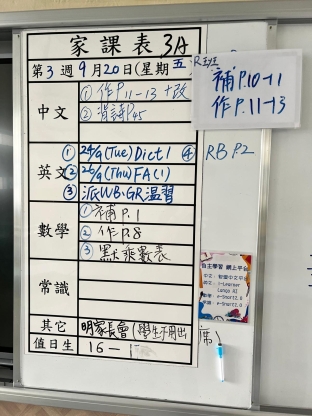 家課表 3A
第3週9月20日(星期五
R班
補P.10-11
作P.11-13
中文
① 作P.11-13 +改
② 背詩P.45
英文
① 24/9(Tue) Dict 1 ④ RB P.2
② 26/9(Thu) FA(1)
③ 派WB、GR溫習
數學
① 補P.1
② 作P.8
③ 默乘數表
常識
自主學習 網上平台
其它
明家長會(學生不用出席)
值日生
16 -